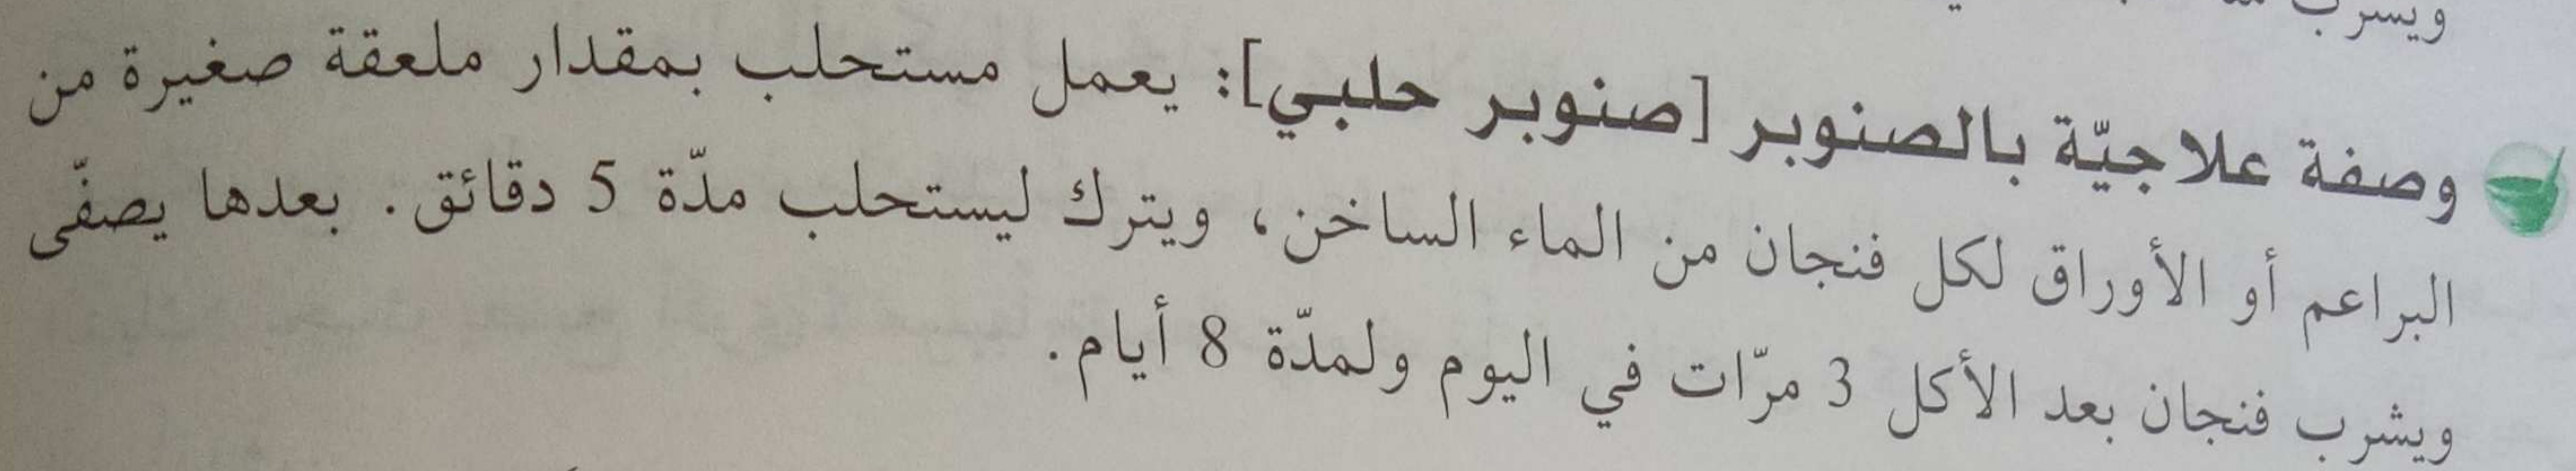 ويشرب
وصفة علاجيّة بالصنوبر [صنوبر حلبي]: يعمل مستحلب بمقدار ملعقة صغيرة من
البراعم أو الأوراق لكل فنجان من الماء الساخن، ويترك ليستحلب مدّة 5 دقائق. بعدها يصفّى
ويشرب فنجان بعد الأكل 3 مرّات في اليوم ولمدّة 8 أيام.